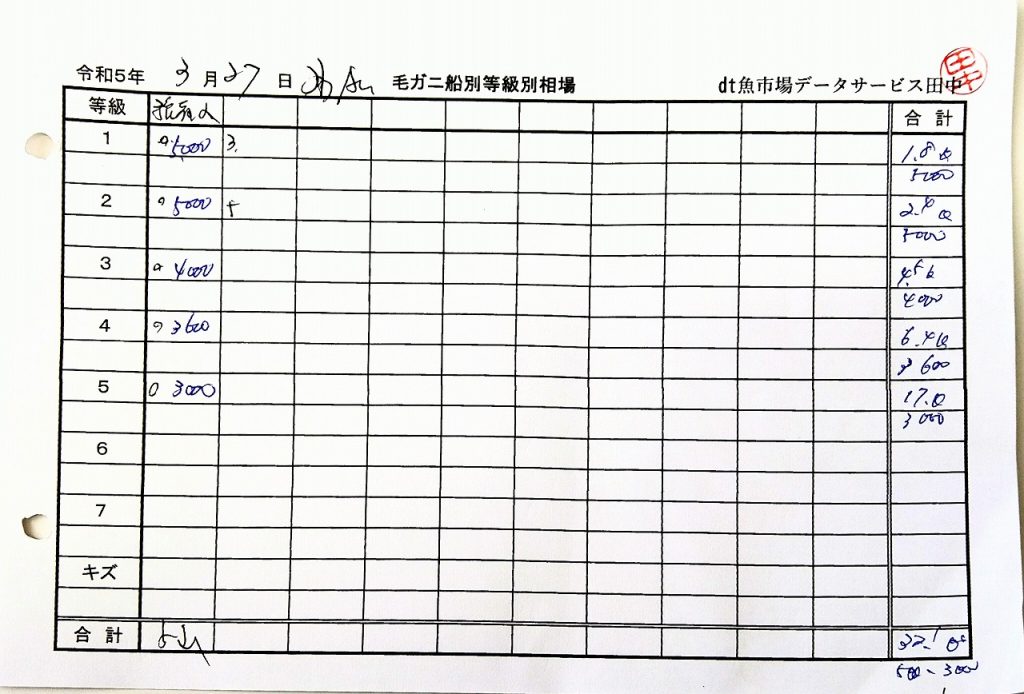 令和5年 3月27日 毛ガニ船別等級別相場 dt魚市場データサービス田中
田中
等級 合計
1 5000 3. 1.8
5000
2 5000 2.4
5000
3 4000 4.5
4000
4 3600 6.4
3600
5 3000 17.0
3000
6
7
キズ
合計 32.1
500-3000